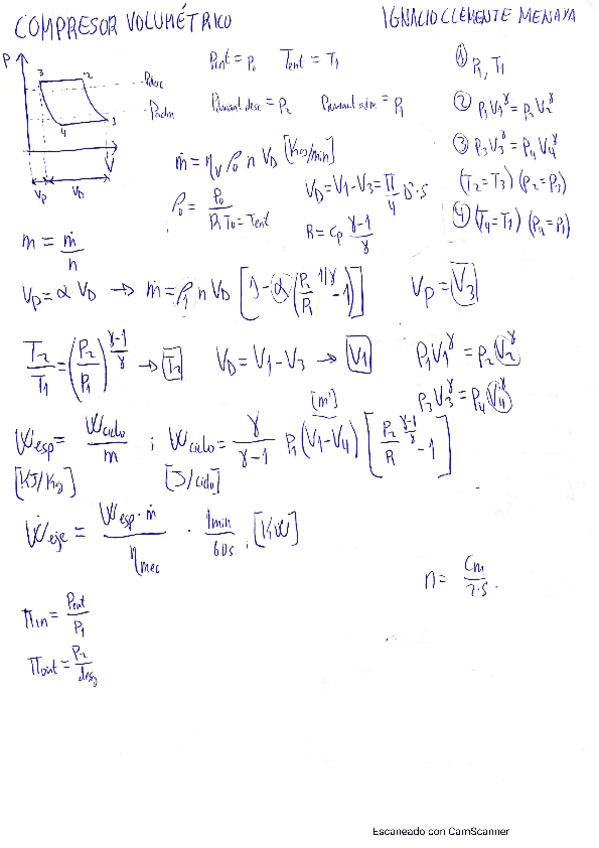 COMPRESOR VOLUMÉTRICO
IGNACIO CLEMENTE MENAYA
P
3
2
Pdesc
Padm
4
1
V
Vp VD
Pent = P0 Tent = T1
Premansat desc = P2
① P1, T1
② P1V1^γ = P2V2^γ
③ P3V3^γ = P4V4^γ
(T2=T3) (P2=P3)
④ (T4=T1) (P4=P1)
ṁ = ηv ρ0 n VD [Kg/min]
ρ0 = P0 / (R T0 = Tent)
VD = V1 - V3 = π/4 D² · S
R = Cp (γ-1)/γ
m = ṁ/n
Vp = α VD → ṁ = ρ1 n VD [1 - α ((P2/P1)^(1/γ) - 1)]
Vp = V3
T2/T1 = (P2/P1)^((γ-1)/γ) → T2
VD = V1 - V3 → V1
P1V1^γ = P2V2^γ
P3V3^γ = P4V4^γ
Wesp = Wciclo/m ; Wciclo = γ/(γ-1) P1 (V1-V4) [(P2/P1)^((γ-1)/γ) - 1]
[m³]
[KJ/Kg] [J/ciclo]
Ẇeje = (Wesp · ṁ)/ηmec · 1min/60s, [KW]
n = Cm/(2·S)
πin = Pent/P1
πout = P2/desg
Escaneado con CamScanner